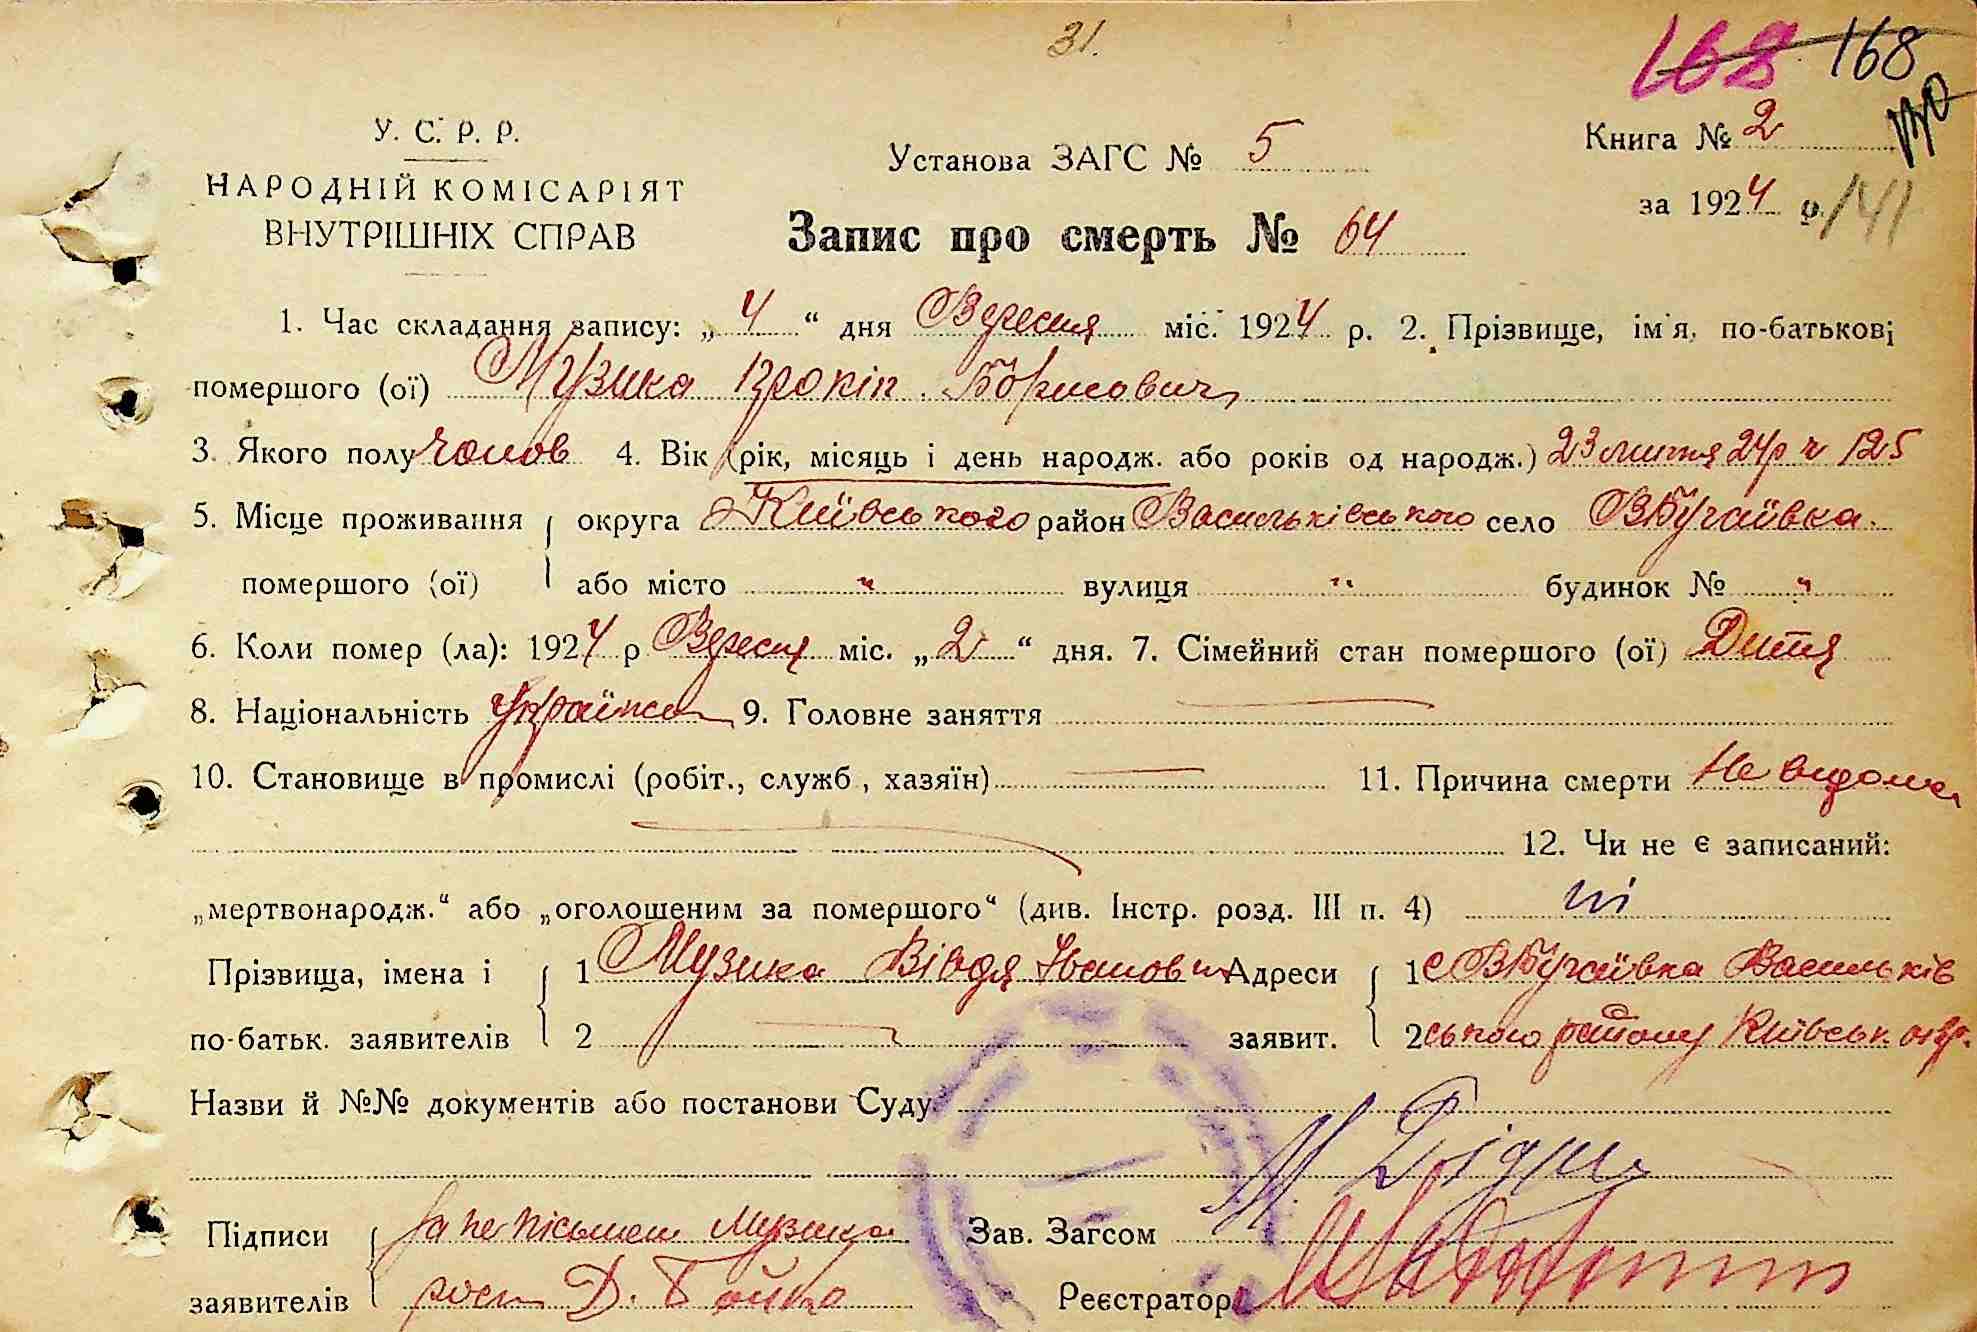 31.
168 168
У. С. Р. Р.
НАРОДНІЙ КОМІСАРІЯТ
ВНУТРІШНІХ СПРАВ
Установа ЗАГС № 5
Книга № 2
за 1924 р. 141
Запис про смерть № 64
1. Час складання запису: „ 4 “ дня Вересня міс. 1924 р. 2. Прізвище, ім'я, по-батькові
помершого (ої) Музика Прокіп Борисович
3. Якого полу чолов 4. Вік (рік, місяць і день народж. або років од народж.) 23 липня 24р ч 125
5. Місце проживання округа Київського район Васильківського село ВБугаївка
помершого (ої) або місто " вулиця " будинок № "
6. Коли помер (ла): 1924 р Вересня міс. „ 2 “ дня. 7. Сімейний стан помершого (ої) Дитя
8. Національність Українец 9. Головне заняття
10. Становище в промислі (робіт., служб , хазяїн) 11. Причина смерти Не видома
12. Чи не є записаний:
„мертвонародж.“ або „оголошеним за помершого“ (див. Інстр. розд. III п. 4) ні
Прізвища, імена і 1 Музика Іванов Адреси 1 с ВБугаївка Васильків
по-батьк. заявителів 2 заявит. 2 ського району Київськ окр.
Назви й №№ документів або постанови Суду
Підписи за не письмен Музика Зав. Загсом
заявителів рост Д. Бойко Реєстратор